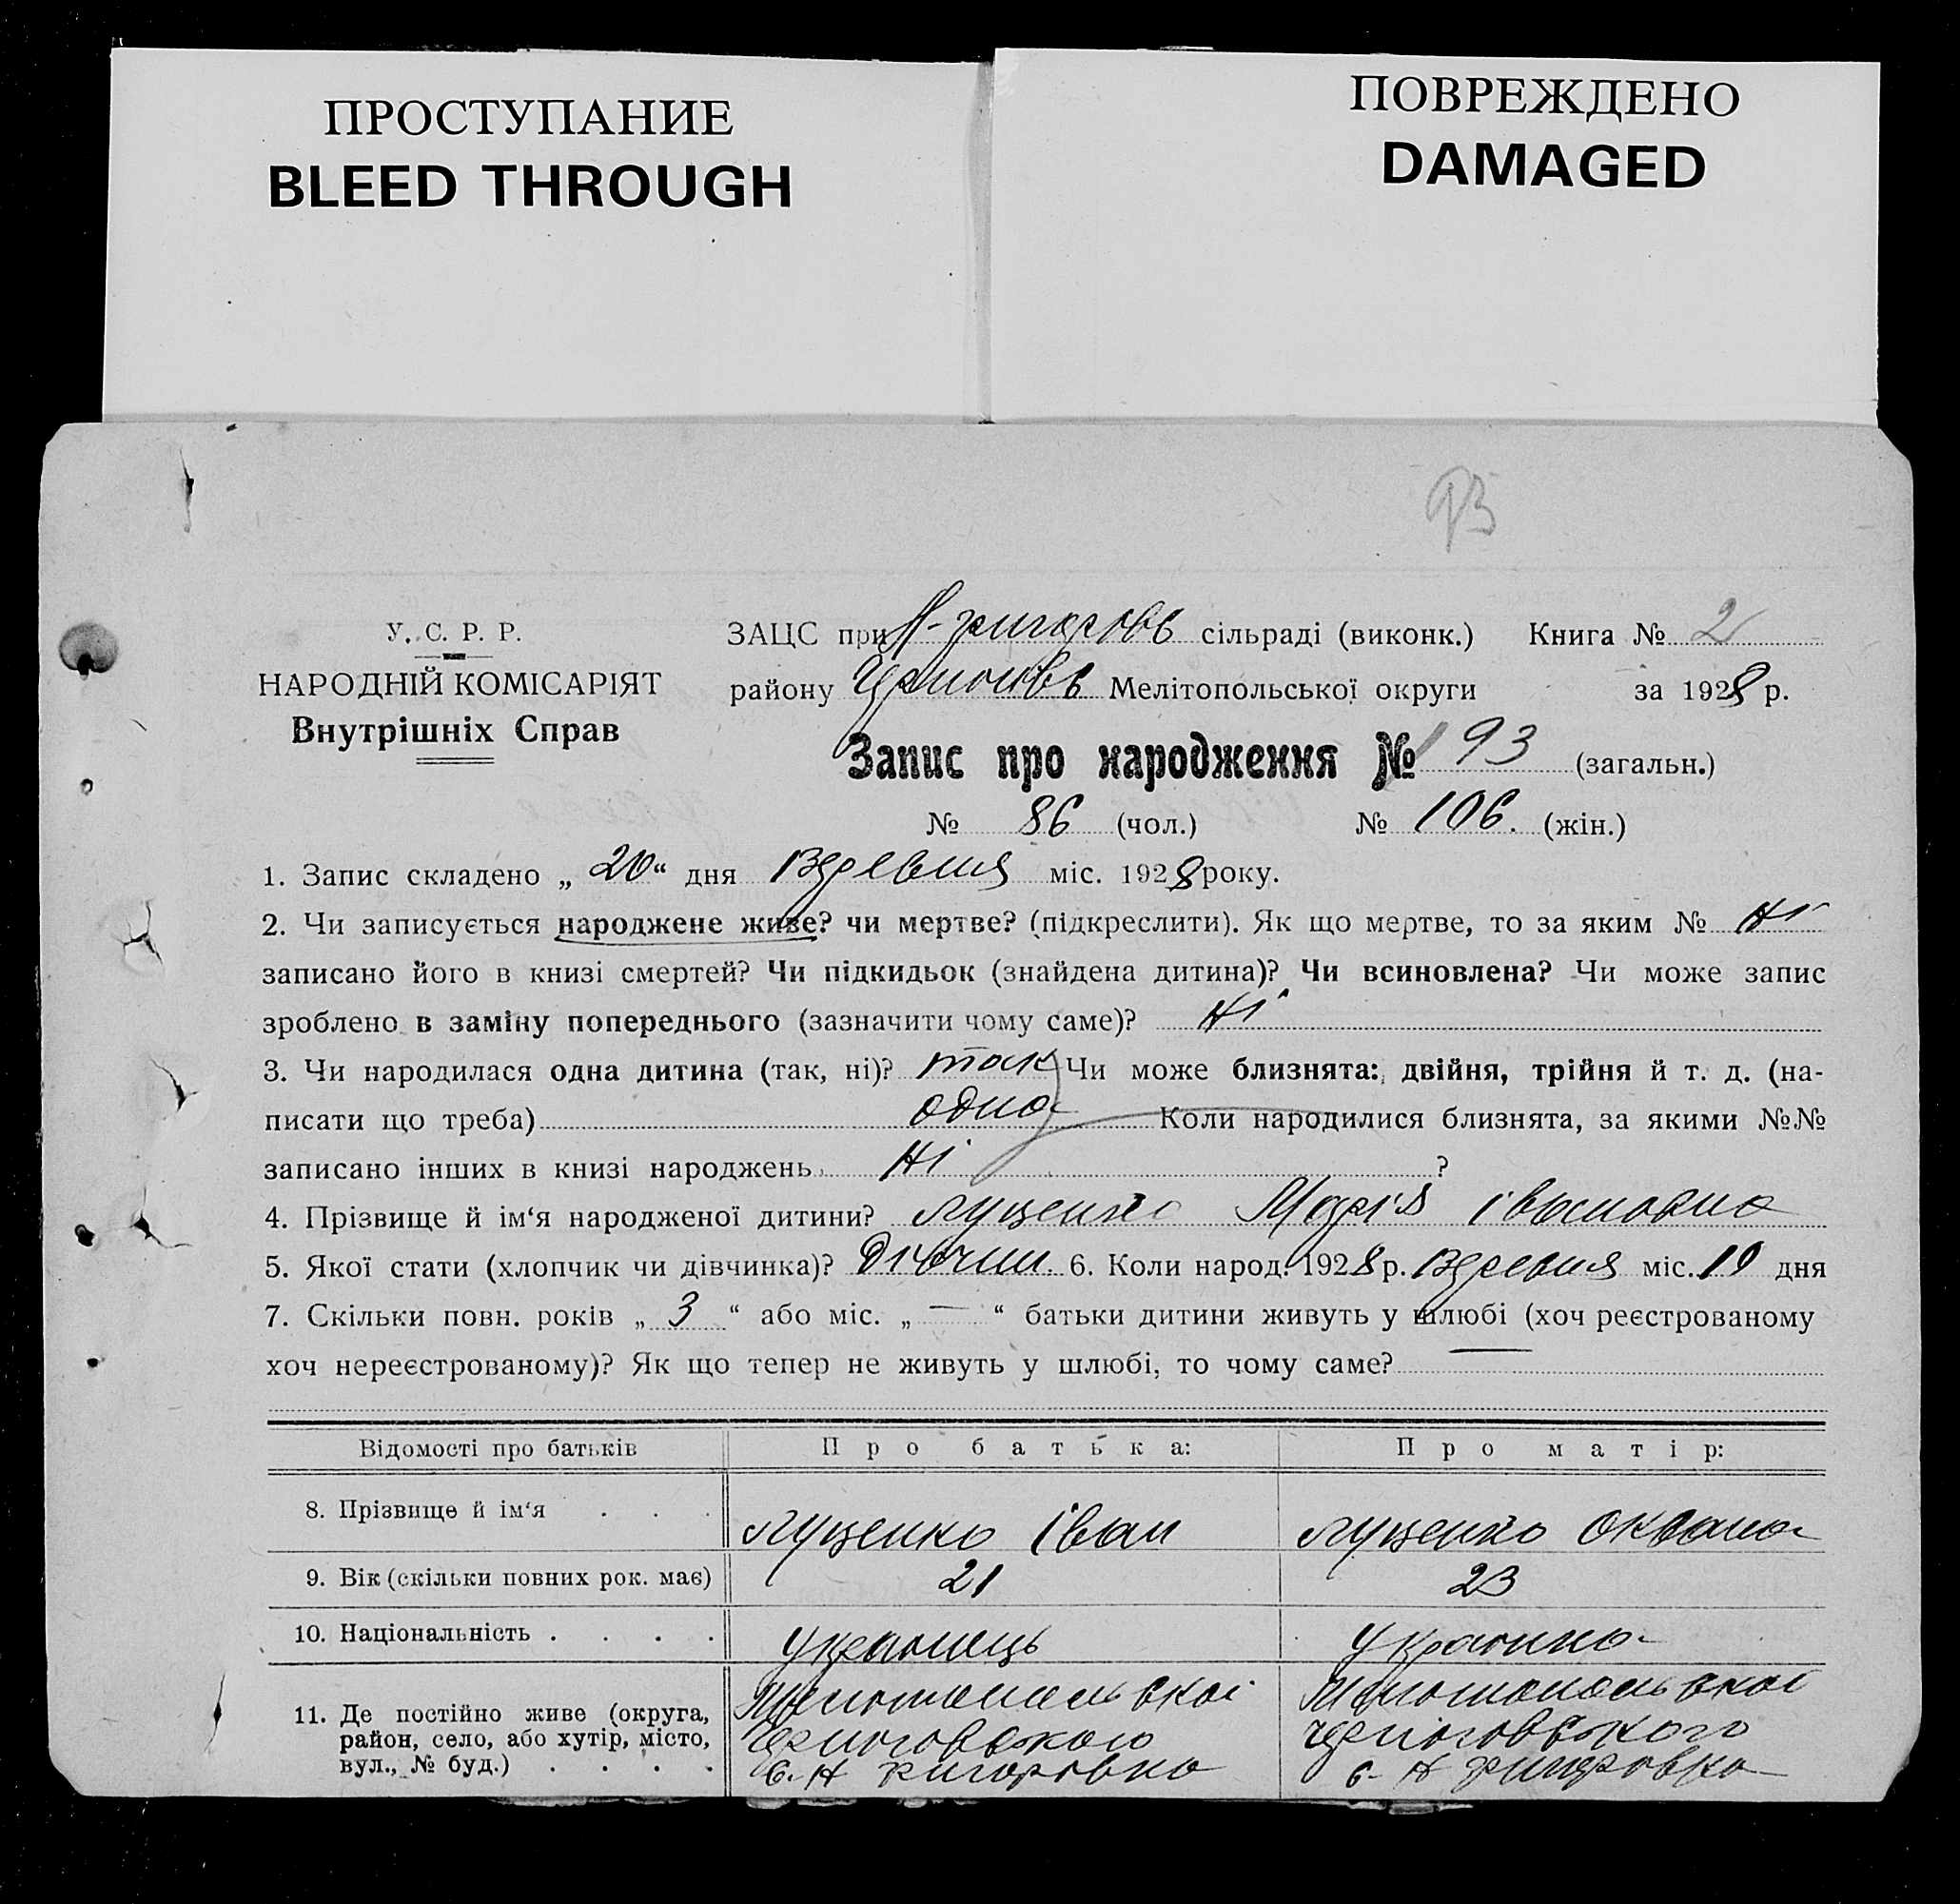 ПРОСТУПАНИЕ
BLEED THROUGH
ПОВРЕЖДЕНО
DAMAGED
93
У. С. Р. Р.
НАРОДНІЙ КОМІСАРІЯТ
Внутрішніх Справ
ЗАЦС при Н-григоровь сільраді (виконк.) Книга № 2
району Мелітопольської округи за 1928 р.
Запис про народження № 193 (загальн.)
№ 86 (чол.) № 106. (жін.)
1. Запис складено „ 20 “ дня міс. 1928 року.
2. Чи записується народжене живе? чи мертве? (підкреслити). Як що мертве, то за яким № Ні
записано його в книзі смертей? Чи підкидьок (знайдена дитина)? Чи всиновлена? Чи може запис
зроблено в заміну попереднього (зазначити чому саме)? Ні
3. Чи народилася одна дитина (так, ні)? так Чи може близнята: двійня, трійня й т. д. (на-
писати що треба) одна Коли народилися близнята, за якими №№
записано інших в книзі народжень Ні ?
4. Прізвище й ім‘я народженої дитини? Луценко Марія Івановна
5. Якої стати (хлопчик чи дівчинка)? Дівчин. 6. Коли народ. 1928 р. міс. 10 дня
7. Скільки повн. років „ 3 “ або міс. „ — “ батьки дитини живуть у шлюбі (хоч реєстрованому
хоч нереєстрованому)? Як що тепер не живуть у шлюбі, то чому саме? —
Відомості про батьків Про батька: Про матір:
8. Прізвище й ім‘я . . . Луценко Іван Луценко Оксана
9. Вік (скільки повних рок. має) 21 23
10. Національність . . . . Українець Українка
11. Де постійно живе (округа,
район, село, або хутір, місто,
вул., № буд.) . . . .
Мелитопольськоі
Черніговського
с. Н григоровка
Мелитопольськоі
Черніговського
с- Н григоровка